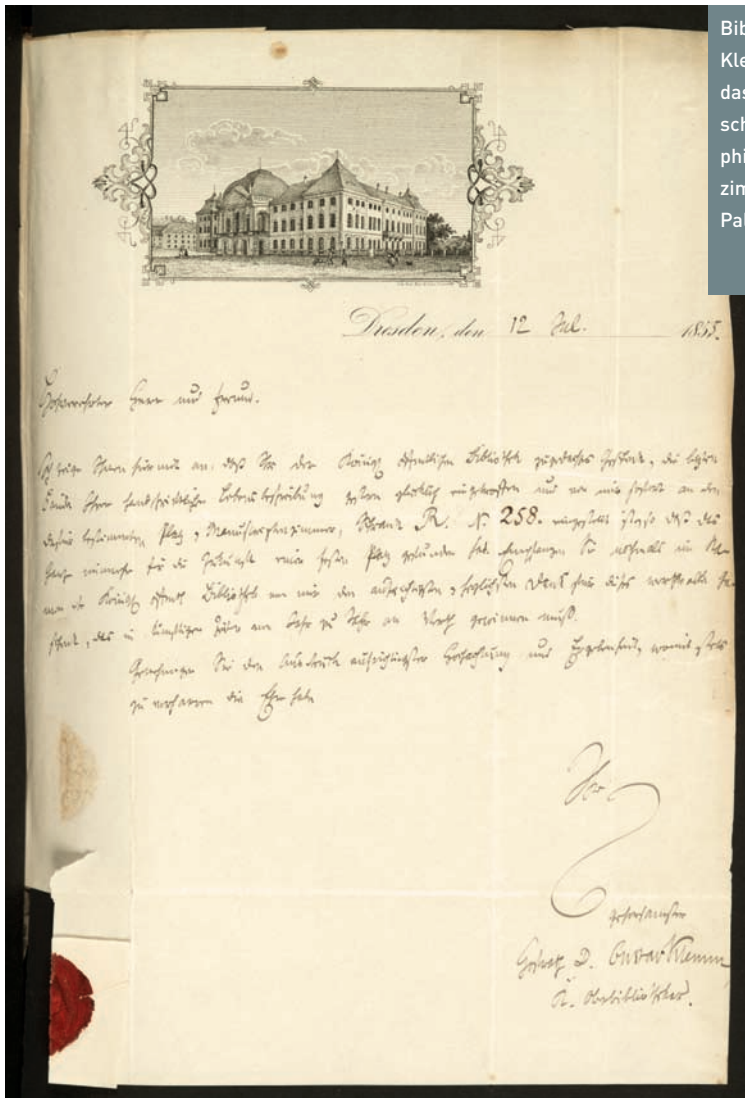 Bib
Kle
das
sch
phi
zim
Pal
Dresden, den 12 Jul. 1855.
Hochverehrter Herr und Freund.
Ich zeige Ihnen hiermit an, daß Ihr der Königl öffentlichen Bibliothek zugedachtes Geschenk, die letzten
Bände Ihrer handschriftlichen Lebensbeschreibung gestern glücklich eingetroffen und von mir sofort an den
dafür bestimmten Platz, Manuscriptenzimmer, Schrank R. N. 258. eingestellt ist, so daß das
Ganze nunmehr für die Zukunft einen festen Platz gefunden hat. Empfangen Sie nochmals im Na-
men der Königl öffentl Bibliothek von mir den aufrichtigsten, herzlichsten Dank für dieses werthvolle Ge-
schenk, das in künftigen Zeiten von Jahr zu Jahr an Werth gewinnen muß.
Genehmigen Sie den Ausdruck aufrichtigster Hochachtung und Ergebenheit, womit stets
zu verharren die Ehre habe
Ihr
gehorsamster
Hofrath D. Gustav Klemm
K. Oberbibliothekar.